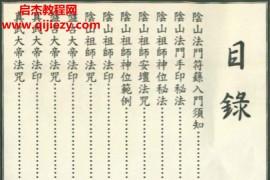 启杰教程网
目錄
陰山法門符籙入門須知
陰山法門手印秘法
陰山祖師神位秘法
陰山祖師安壇法咒
陰山祖師神位範例
陰山祖師法印
陰山祖師法咒
盤古大帝法印
盤古大帝法咒
真武大帝法印
真武大帝法咒